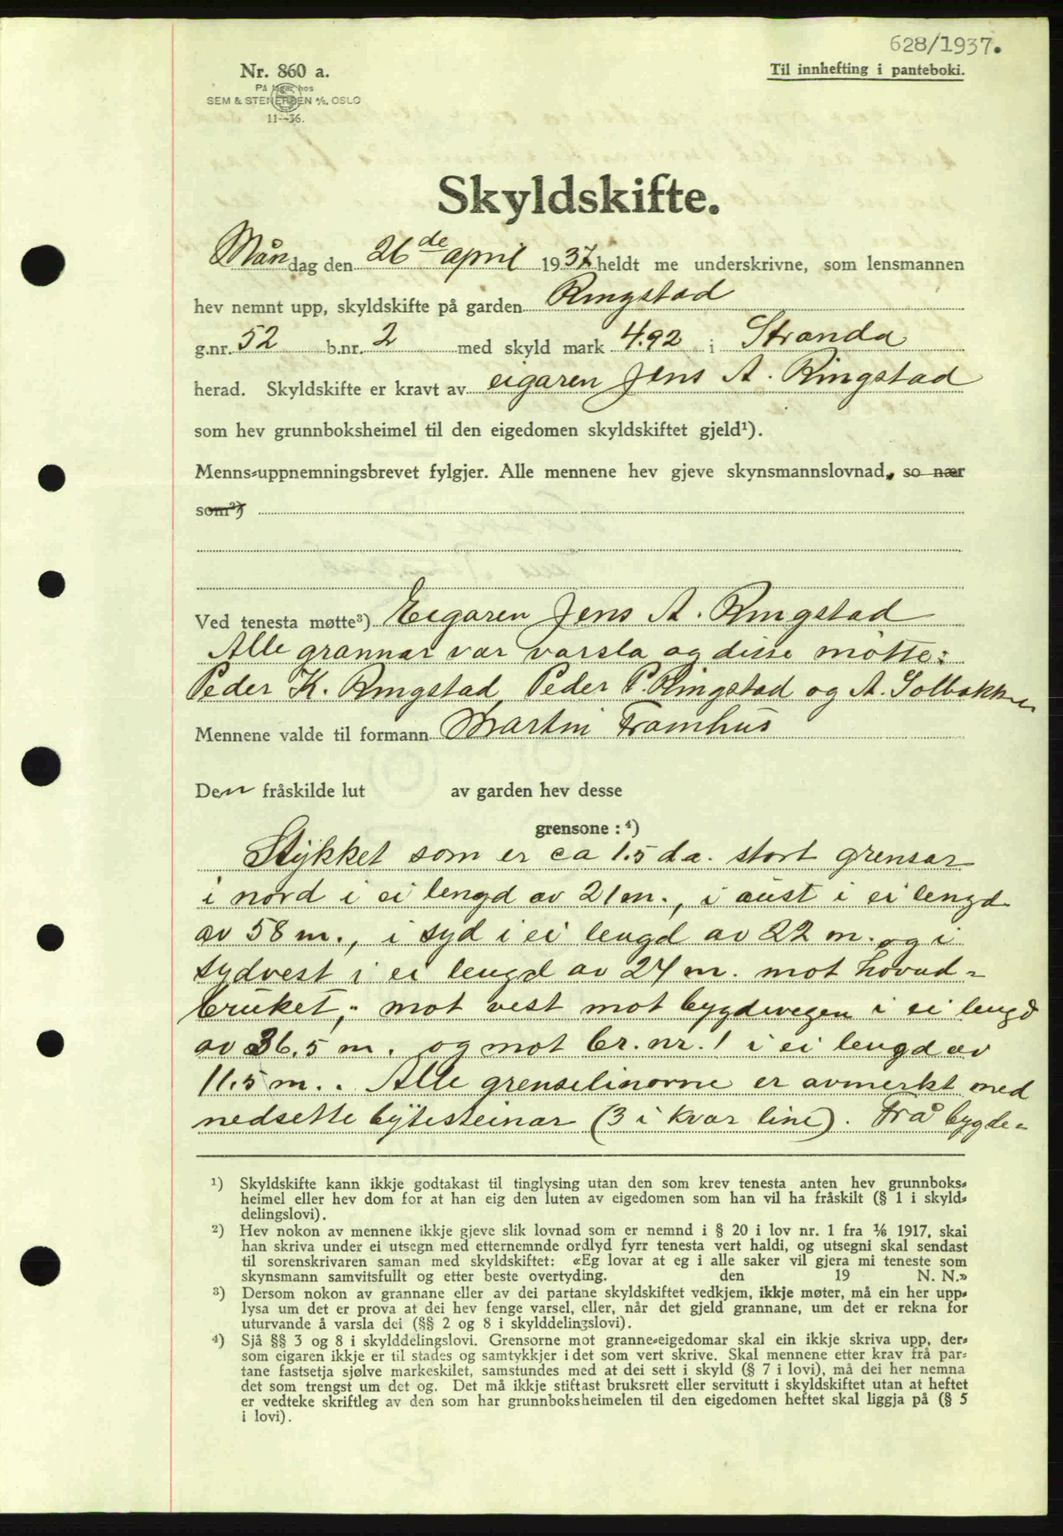 628/1937.
Nr. 860 a.
Til innhefting i panteboki.
På lager hos
SEM & STENERSEN A/S, OSLO
11—36.
Skyldskifte.
Måndag den 26de april 1937 heldt me underskrivne, som lensmannen
hev nemnt upp, skyldskifte på garden Ringstad
g.nr. 52 b.nr. 2 med skyld mark 4.92 i Stranda
herad. Skyldskifte er kravt av eigaren Jens A. Ringstad
som hev grunnboksheimel til den eigedomen skyldskiftet gjeld¹).
Menns-uppnemningsbrevet fylgjer. Alle mennene hev gjeve skynsmannslovnad, so nær
som²)
Ved tenesta møtte³) Eigaren Jens A. Ringstad
Alle grannar var varsla og disse møtte:
Peder K. Ringstad, Peder P. Ringstad og A. Solbakken
Mennene valde til formann Martin Framhus
Den fråskilde lut av garden hev desse
grensone : ⁴)
Stykket som er ca 1.5 da. stort grensar
i nord i ei lengd av 21 m., i aust i ei lengd
av 58 m., i syd i ei lengd av 22 m. og i
sydvest i ei lengd av 24 m. mot hovud-
bruket, mot vest mot bygdevegen i ei lengd
av 36.5 m. og mot br. nr. 1 i ei lengd av
11.5 m.. Alle grenselinorne er avmerkt med
nedsette bytesteinar (3 i kvar line). Frå bygde-
¹) Skyldskifte kann ikkje godtakast til tinglysing utan den som krev tenesta anten hev grunnboks-
heimel eller hev dom for at han eig den luten av eigedomen som han vil ha fråskilt (§ 1 i skyld-
delingslovi).
²) Hev nokon av mennene ikkje gjeve slik lovnad som er nemnd i § 20 i lov nr. 1 fra ⅛ 1917, skal
han skriva under ei utsegn med etternemnde ordlyd fyrr tenesta vert haldi, og utsegni skal sendast
til sorenskrivaren saman med skyldskiftet: «Eg lovar at eg i alle saker vil gjera mi teneste som
skynsmann samvitsfullt og etter beste overtyding. den 19 N. N.»
³) Dersom nokon av grannane eller av dei partane skyldskiftet vedkjem, ikkje møter, må ein her upp-
lysa um det er prova at dei hev fenge varsel, eller, når det gjeld grannane, um det er rekna for
uturvande å varsla dei (§§ 2 og 8 i skylddelingslovi).
⁴) Sjå §§ 3 og 8 i skylddelingslovi. Grensorne mot granne-eigedomar skal ein ikkje skriva upp, der-
som eigaren ikkje er til stades og samtykkjer i det som vert skrive. Skal mennene etter krav frå par-
tane fastsetja sjølve markeskilet, samstundes med at dei sett i skyld (§ 7 i lovi), må dei her nemna
det som trengst um det og. Det må ikkje stiftast bruksrett eller servitutt i skyldskiftet utan at heftet
er vedteke skriftleg av den som har grunnboksheimelen til den eigedomen heftet skal liggja på (§ 5
i lovi).